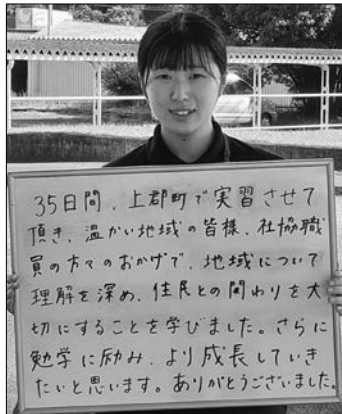 35日間、上郡町で実習させて
頂き、温かい地域の皆様、社協職
員の方々のおかげで、地域について
理解を深め、住民との関わりを大
切にすることを学びました。さらに
勉学に励み、より成長していき
たいと思います。ありがとうございました。